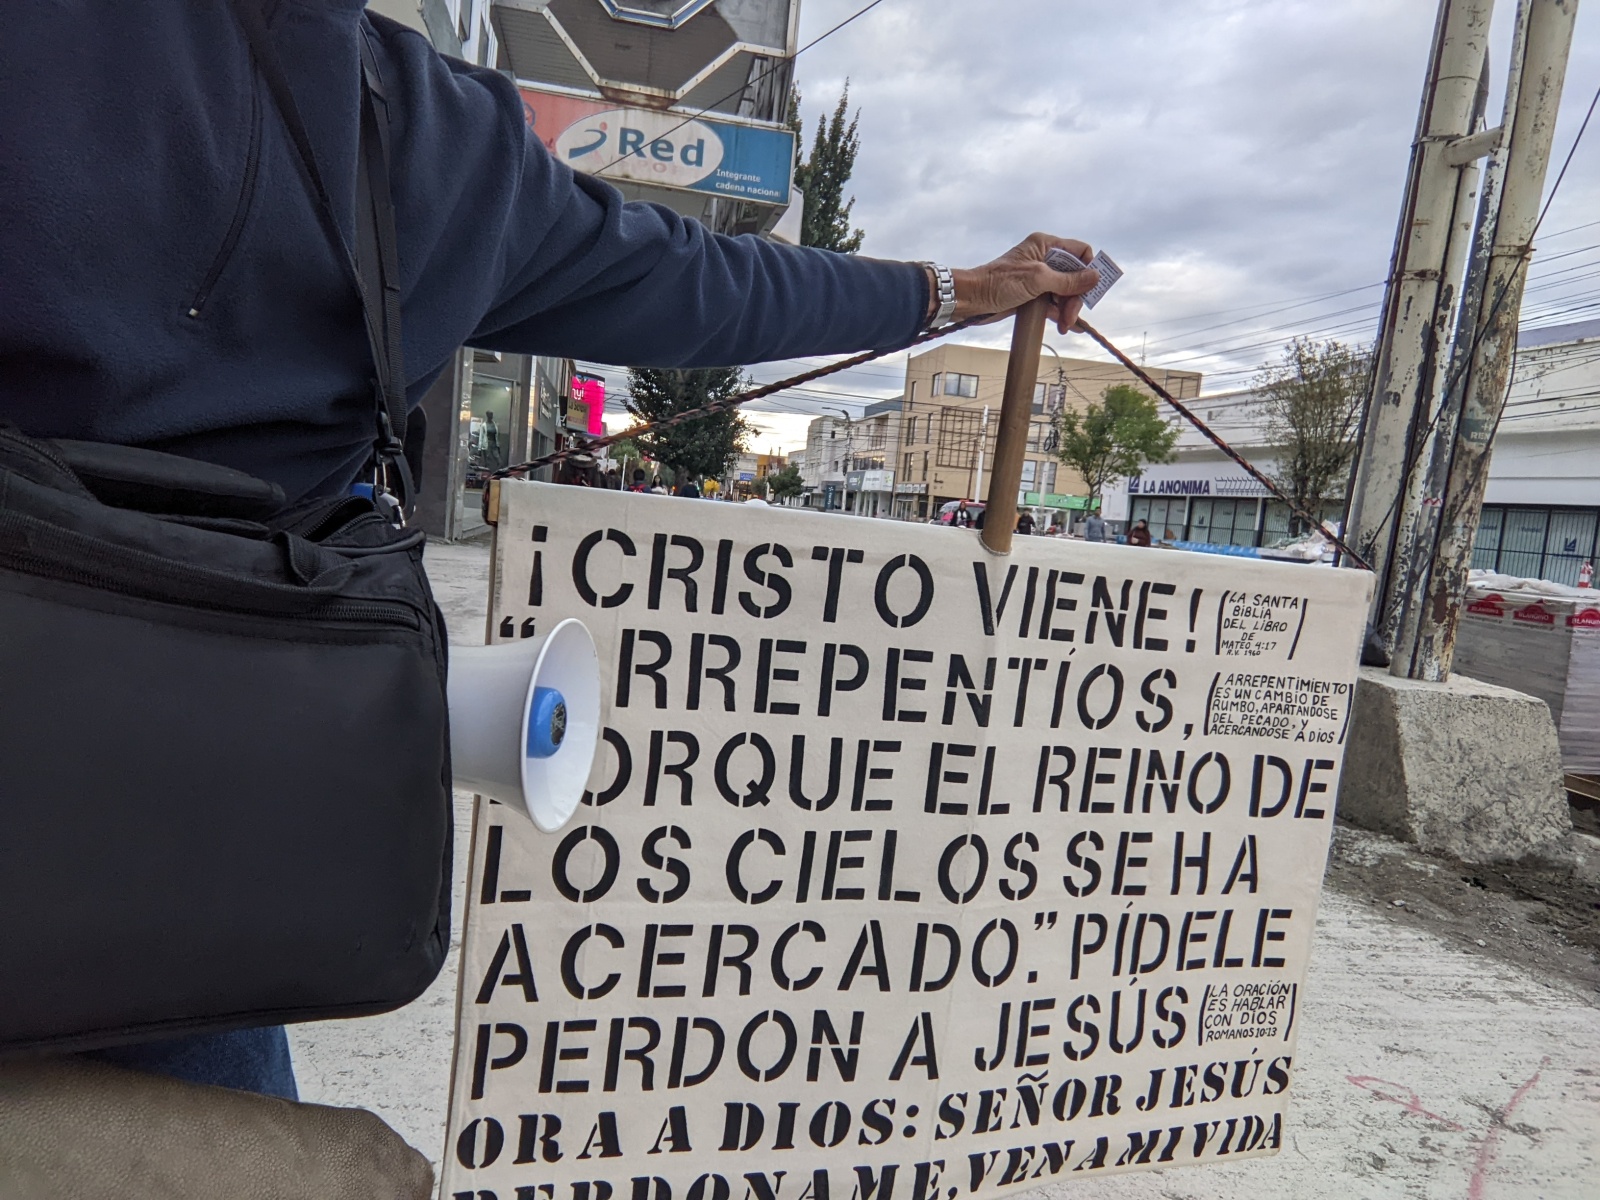 Red
Integrante
cadena nacional
LA ANONIMA
¡CRISTO VIENE!
(LA SANTA
BIBLIA
DEL LIBRO
DE
MATEO 4:17
R.V. 1960)
“ RREPENTÍOS,
(ARREPENTIMIENTO
ES UN CAMBIO DE
RUMBO, APARTANDOSE
DEL PECADO, Y
ACERCANDOSE A DIOS)
ORQUE EL REINO DE
LOS CIELOS SE HA
ACERCADO.” PÍDELE
PERDON A JESÚS
(LA ORACIÓN
ES HABLAR
CON DIOS
ROMANOS 10:13)
ORA A DIOS: SEÑOR JESÚS
PERDONAME, VEN A MI VIDA